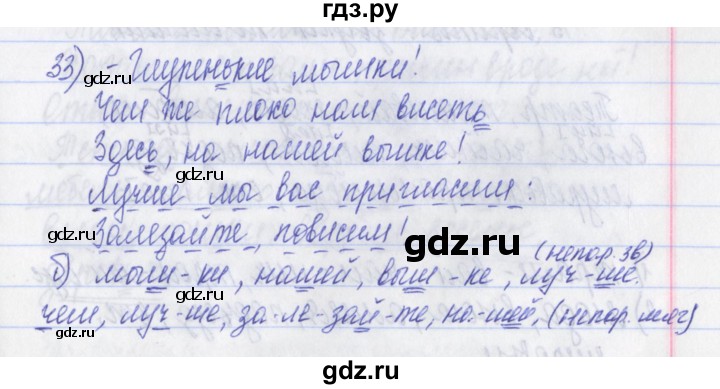 гдз.ру
33) - Глупенькие мышки!
gdz.ru
Чем же плохо нам висеть
gdz.ru
Здесь, на нашей вышке!
Лучше мы вас пригласим:
gdz.ru
Залезайте, повисим!
gdz.ru
(непар. зв)
б) мыш-ки, нашей, выш-ке, луч-ше.
gdz.ru
чем, луч-ше, за-ле-зай-те, на-шей, (непар. мяг)
gdz.ru